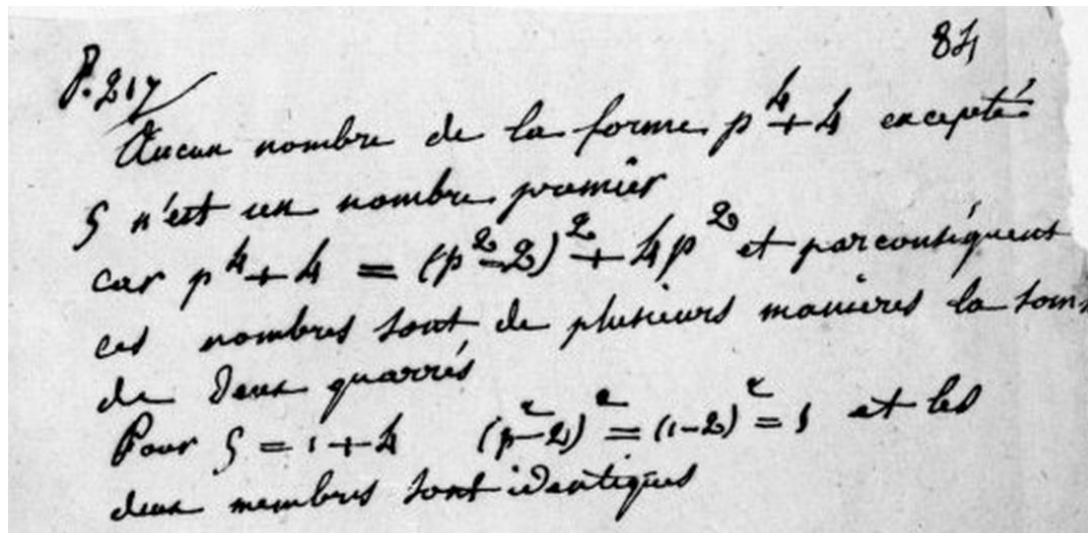 84
P. 217
Aucun nombre de la forme p⁴+4 excepté
5 n'est un nombre premier
car p⁴+4 = (p²-2)² + 4p² et parconséquent
ces nombres sont de plusieurs manières la som
de deux quarrés
Pour 5 = 1+4 (p²-2)² = (1-2)² = 1 et les
deux membres sont identiques